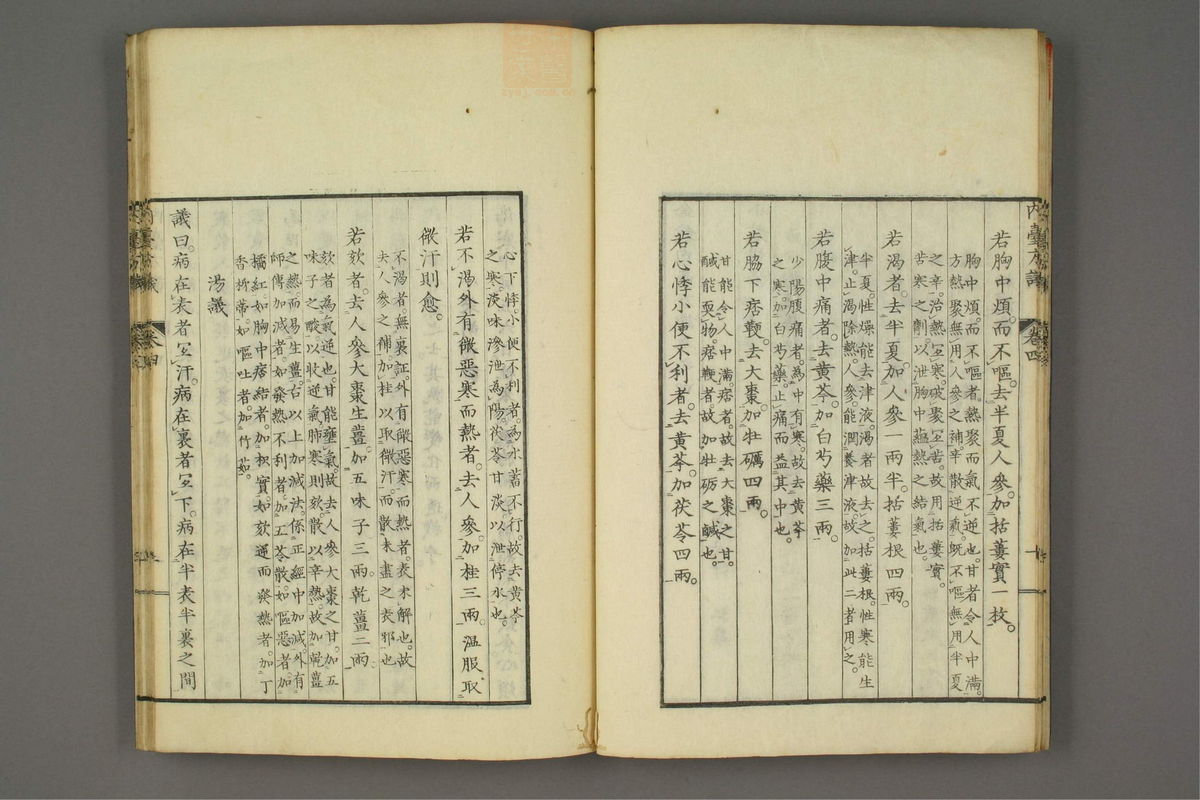 若胸中煩。而不嘔。去半夏人參。加括蔞實一枚。
胸中煩。而不嘔者。熱聚而氣不逆也。甘者令人中滿。
方熱聚無用人參之補。辛散逆氣。既不嘔無用半夏
之辛。治熱宜寒。破聚宜苦。故用括蔞實。
苦寒之劑。以泄胸中蘊熱之結氣也。
若渴者。去半夏。加人參一兩半。括蔞根四兩。
半夏。性燥。能去津液。渴者故去之。括蔞根。性寒能生
津。止渴除熱。人參。能潤養津液。故加此二者用之。
若腹中痛者。去黄芩。加白芍藥三兩。
少陽腹痛者。為中有寒。故去黄芩
之寒。加白芍藥。止痛而益其中也。
若脇下痞鞕。去大棗。加牡礪四兩。
甘能令人中滿。痞者。故去大棗之甘。
鹹能耎物。痞鞕者故加牡砺之鹹也。
若心悸小便不利者。去黄芩。加茯苓四兩。
心下悸。小便不利者。為水蓄不行。故去黄芩
之寒。淡味滲泄為陽。茯苓甘淡以泄停水也。
若不渴外有微惡寒而熱者。去人參。加桂三兩。温服取
微汗則愈。
不渴者無裏証。外有微惡寒而熱者。表未解也。故
去人參之補。加桂以取微汗。而散未盡之表邪也
若欬者。去人參大棗生薑。加五味子三兩。乾薑二兩
欬者為氣逆也。甘能壅氣。故去人參大棗之甘。加五
味子之酸。以收逆氣。肺寒則欬。散以辛熱。故加乾薑
之熱。而易生薑。右以上加減法。係正經中加減。外有
師傳加減者。如發熱不利者。加五苓散。如嘔惡者。加
橘紅。如胸中痞結者。加枳實。如欬逆而發熱者。加丁
香柿蒂。如嘔吐者。加竹茹。
湯議
議曰。病在表者宜汗。病在裏者宜下。病在半表半裏之間
内臺方議
卷四